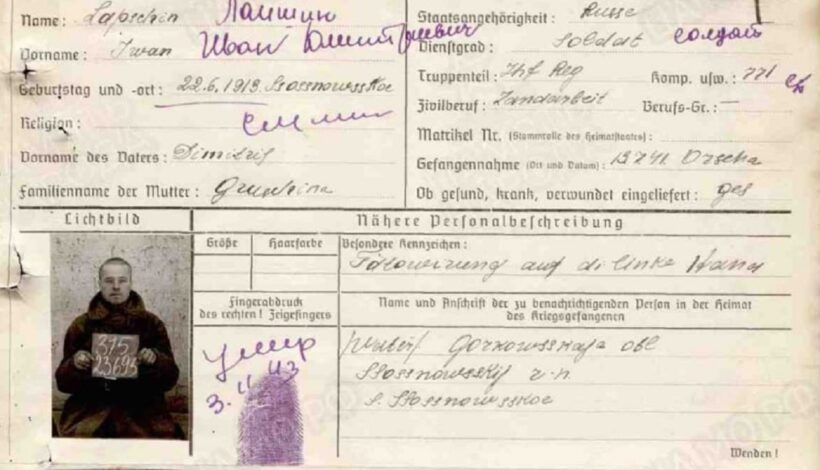 Name: Lapschin Лапшин
Vorname: Iwan Иван Дмитриевич
Geburtstag und -ort: 22.6.1919. Ssosnowsskoe
Religion:
Vorname des Vaters: Dimitrij
Familienname der Mutter: Gruschina
Staatsangehörigkeit: Russe
Dienstgrad: Soldat солдат
Truppenteil: Inf Reg Komp. usw.: 771
Zivilberuf: Landarbeit Berufs-Gr.: —
Matrikel Nr. (Stammrolle des Heimatstaates):
Gefangennahme (Ort und Datum): Orscha
Ob gesund, krank, verwundet eingeliefert: ges
Lichtbild
Nähere Personalbeschreibung
Größe Haarfarbe Besondere Kennzeichen:
Tätowirung auf di linke Hand
Fingerabdruck
des rechten! Zeigefingers
Name und Anschrift der zu benachrichtigenden Person in der Heimat
des Kriegsgefangenen
Gorkowsskaja obl
Ssosnowsskij r-n
s. Ssosnowsskoe
375
23695
умер
3.11.43
Wenden!